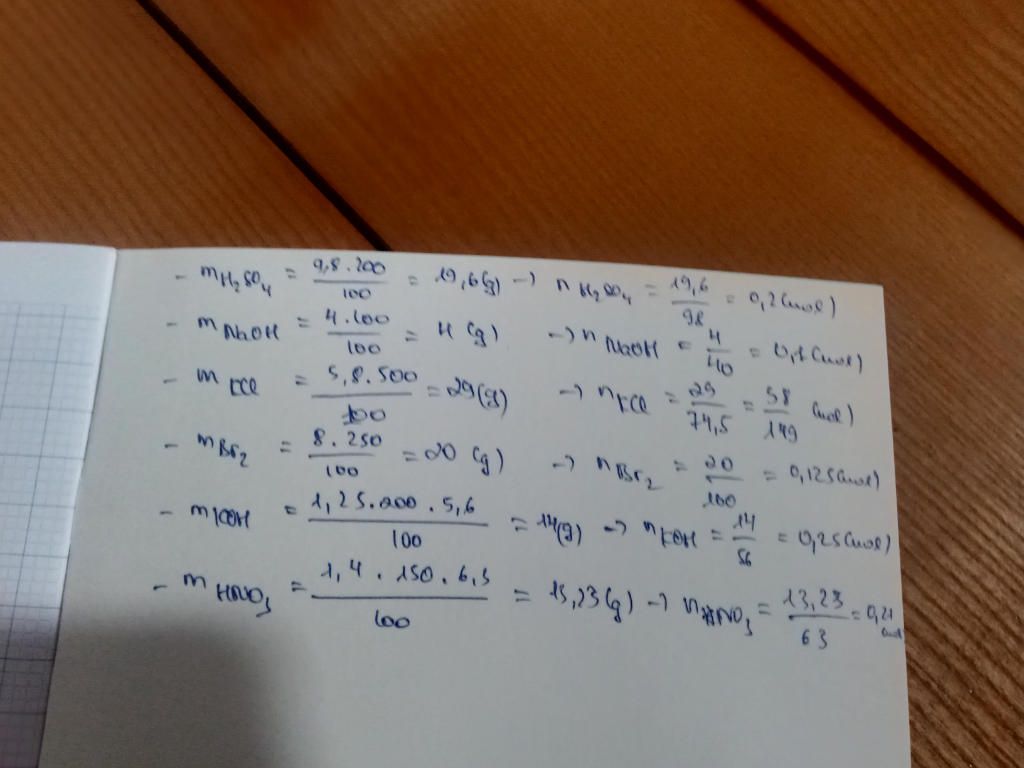 - mH₂SO₄ = 9,8.200/100 = 19,6(g) → nH₂SO₄ = 19,6/98 = 0,2(mol)
- mNaOH = 4.100/100 = 4(g) → nNaOH = 4/40 = 0,1(mol)
- mKCl = 5,8.500/100 = 29(g) → nKCl = 29/74,5 = 58/149 (mol)
- mBr₂ = 8.250/100 = 20 (g) → nBr₂ = 20/160 = 0,125(mol)
- mKOH = 1,25.200.5,6/100 = 14(g) → nKOH = 14/56 = 0,25(mol)
- mHNO₃ = 1,4.150.6,3/100 = 13,23(g) → nHNO₃ = 13,23/63 = 0,21 mol